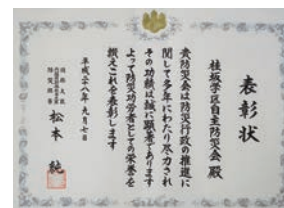 表彰状
桂坂学区自主防災会 殿
貴防災会は防災行政の推進に
関して多年にわたり尽力され
その功績は誠に顕著であります
よって防災功労者としての栄誉を
讃えこれを表彰します
平成二八年九月七日
防災担当
松本 純